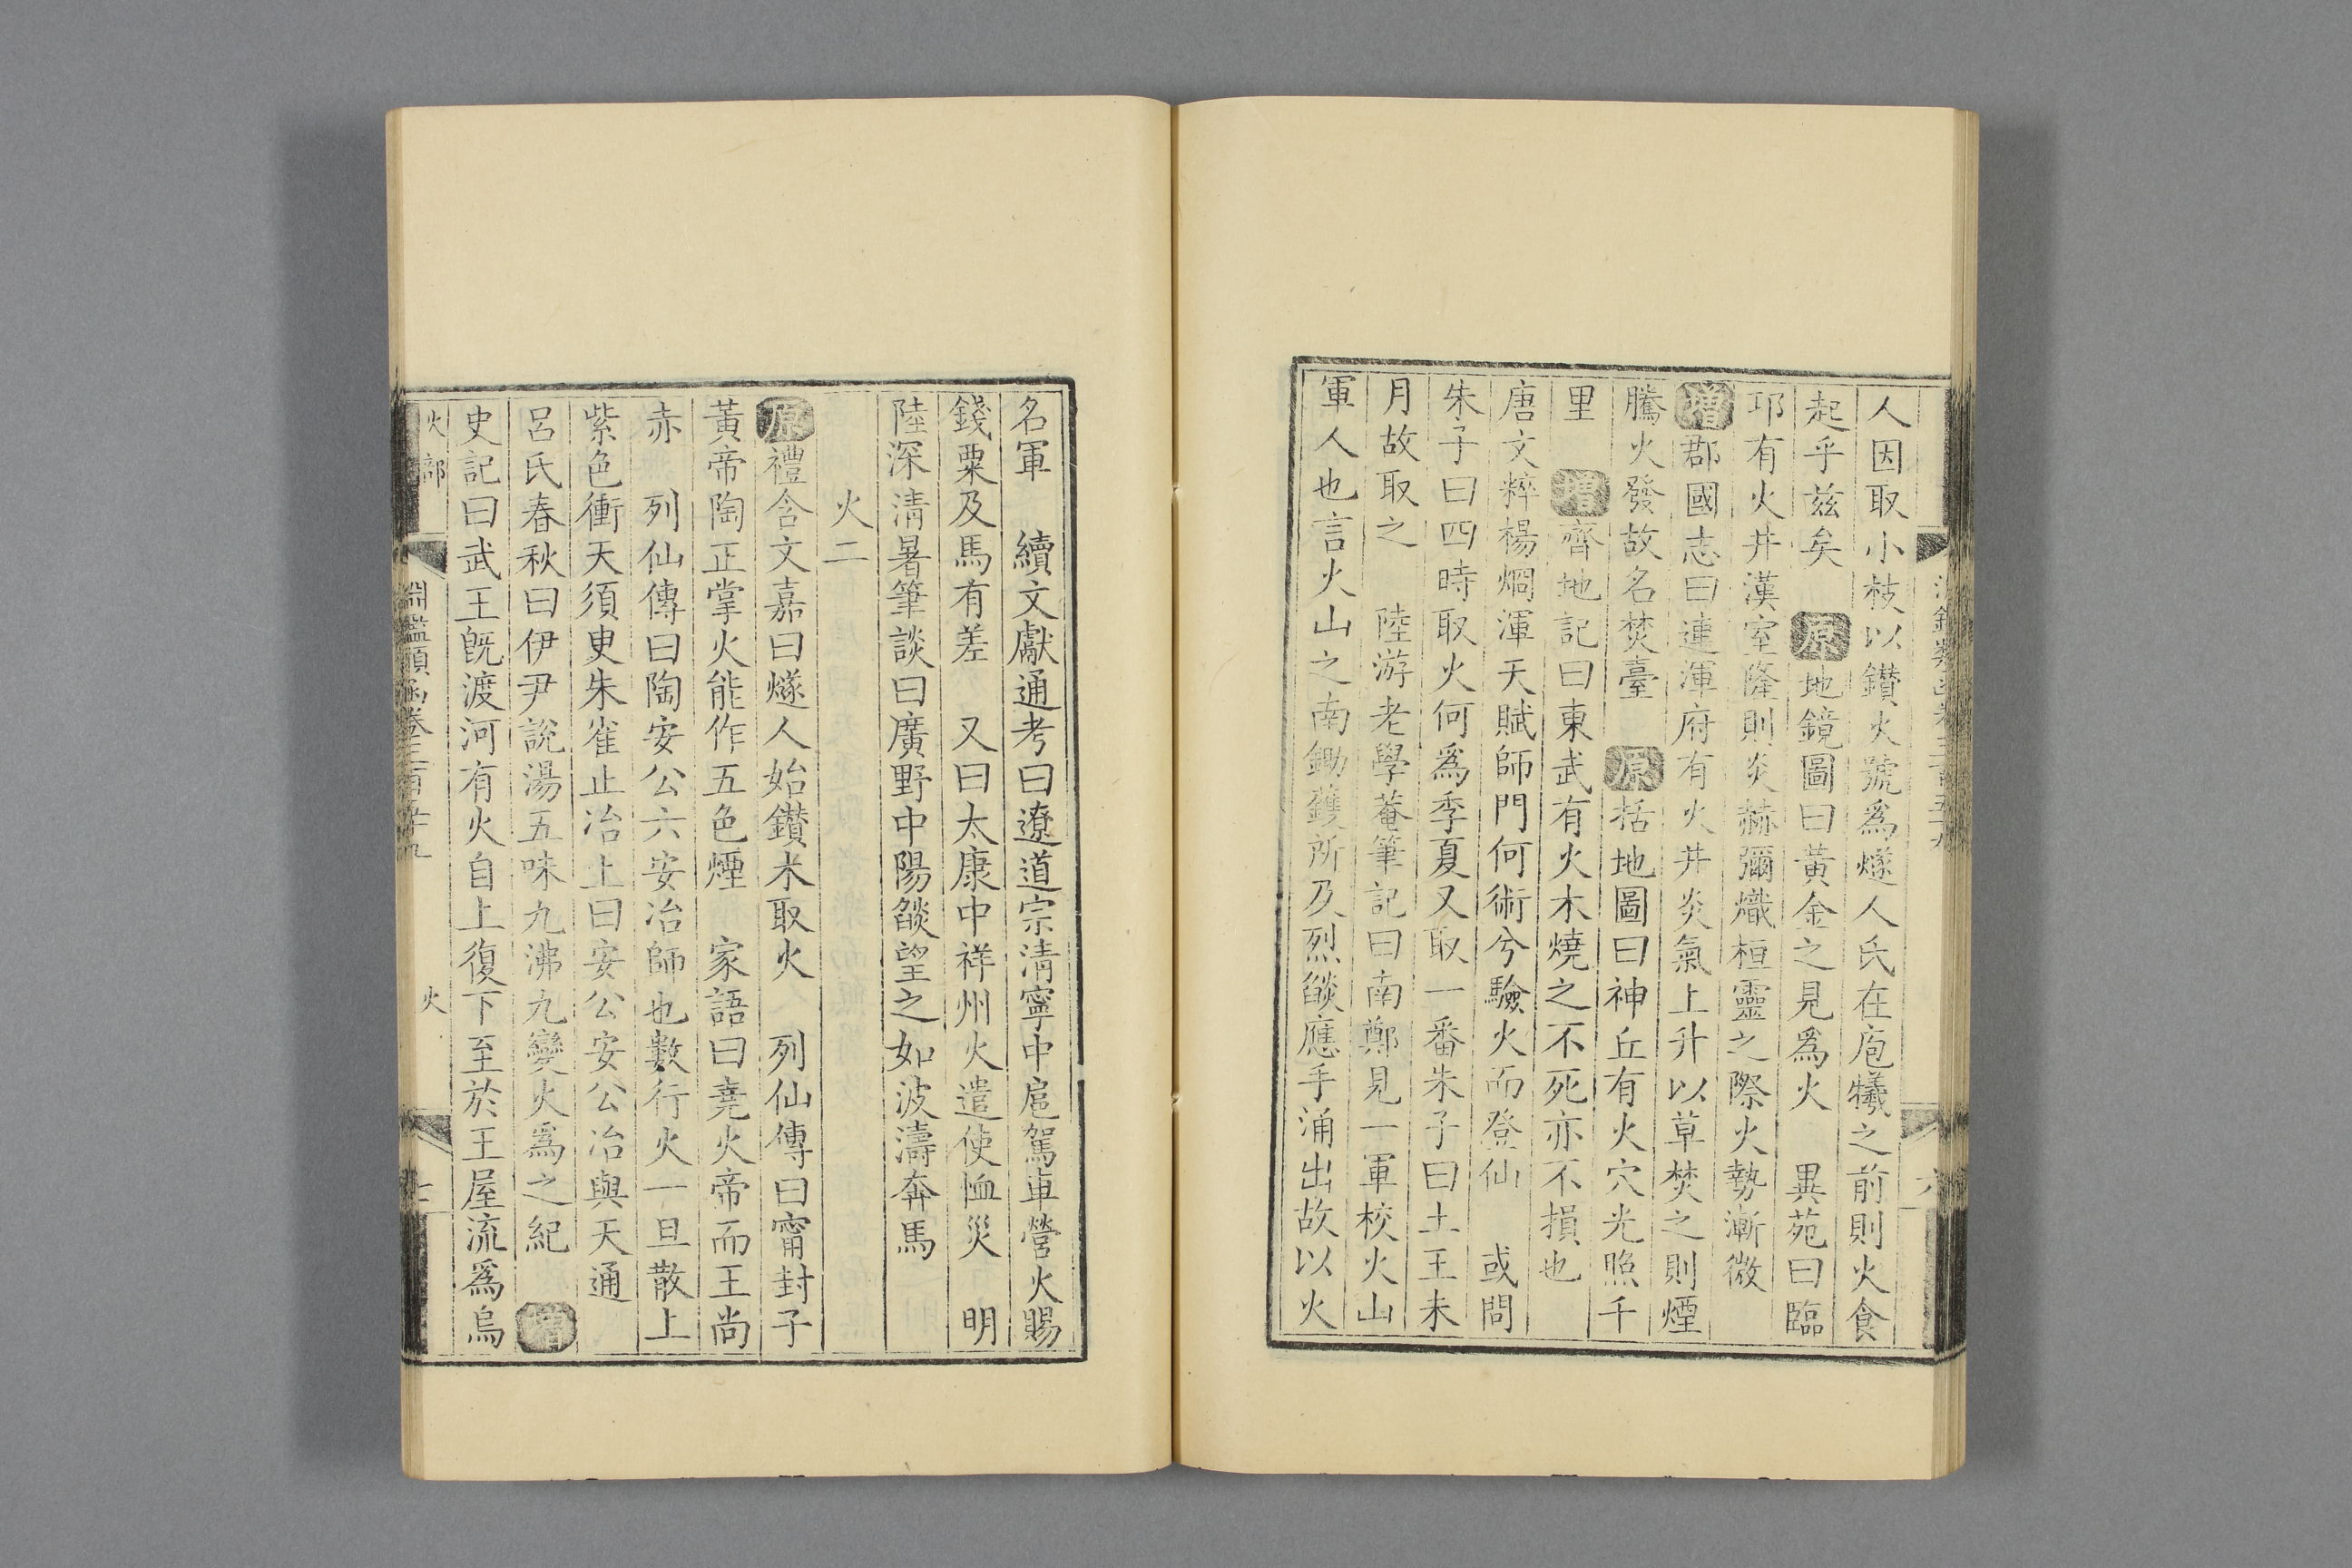 人因取小枝以鑽火號爲燧人氏在庖犧之前則火食
起乎茲矣　原地鏡圖曰黃金之見爲火　異苑曰臨
邛有火井漢室隆則炎赫彌熾桓靈之際火勢漸微
增郡國志曰連渾府有火井炎氣上升以草焚之則煙
騰火發故名焚臺　原括地圖曰神丘有火穴光照千
里　增齊地記曰東武有火木燒之不死亦不損也
唐文粹楊烱渾天賦師門何術兮驗火而登仙　或問
朱子曰四時取火何爲季夏又取一番朱子曰土王未
月故取之　陸游老學菴筆記曰南鄭見一軍校火山
軍人也言火山之南鋤鑊所及烈燄應手涌出故以火
名軍　續文獻通考曰遼道宗清寧中扈駕車營火賜
錢粟及馬有差　又曰太康中祥州火遣使恤災　明
陸深清暑筆談曰廣野中陽燄望之如波濤奔馬
火二
原禮含文嘉曰燧人始鑽木取火　列仙傳曰甯封子
黃帝陶正掌火能作五色煙　家語曰堯火帝而王尚
赤　列仙傳曰陶安公六安冶師也數行火一旦散上
紫色衝天須臾朱雀止冶上曰安公安公冶與天通
呂氏春秋曰伊尹說湯五味九沸九變火爲之紀　增
史記曰武王旣渡河有火自上復下至於王屋流爲烏
火部　淵鑑類函卷三百五十九　火